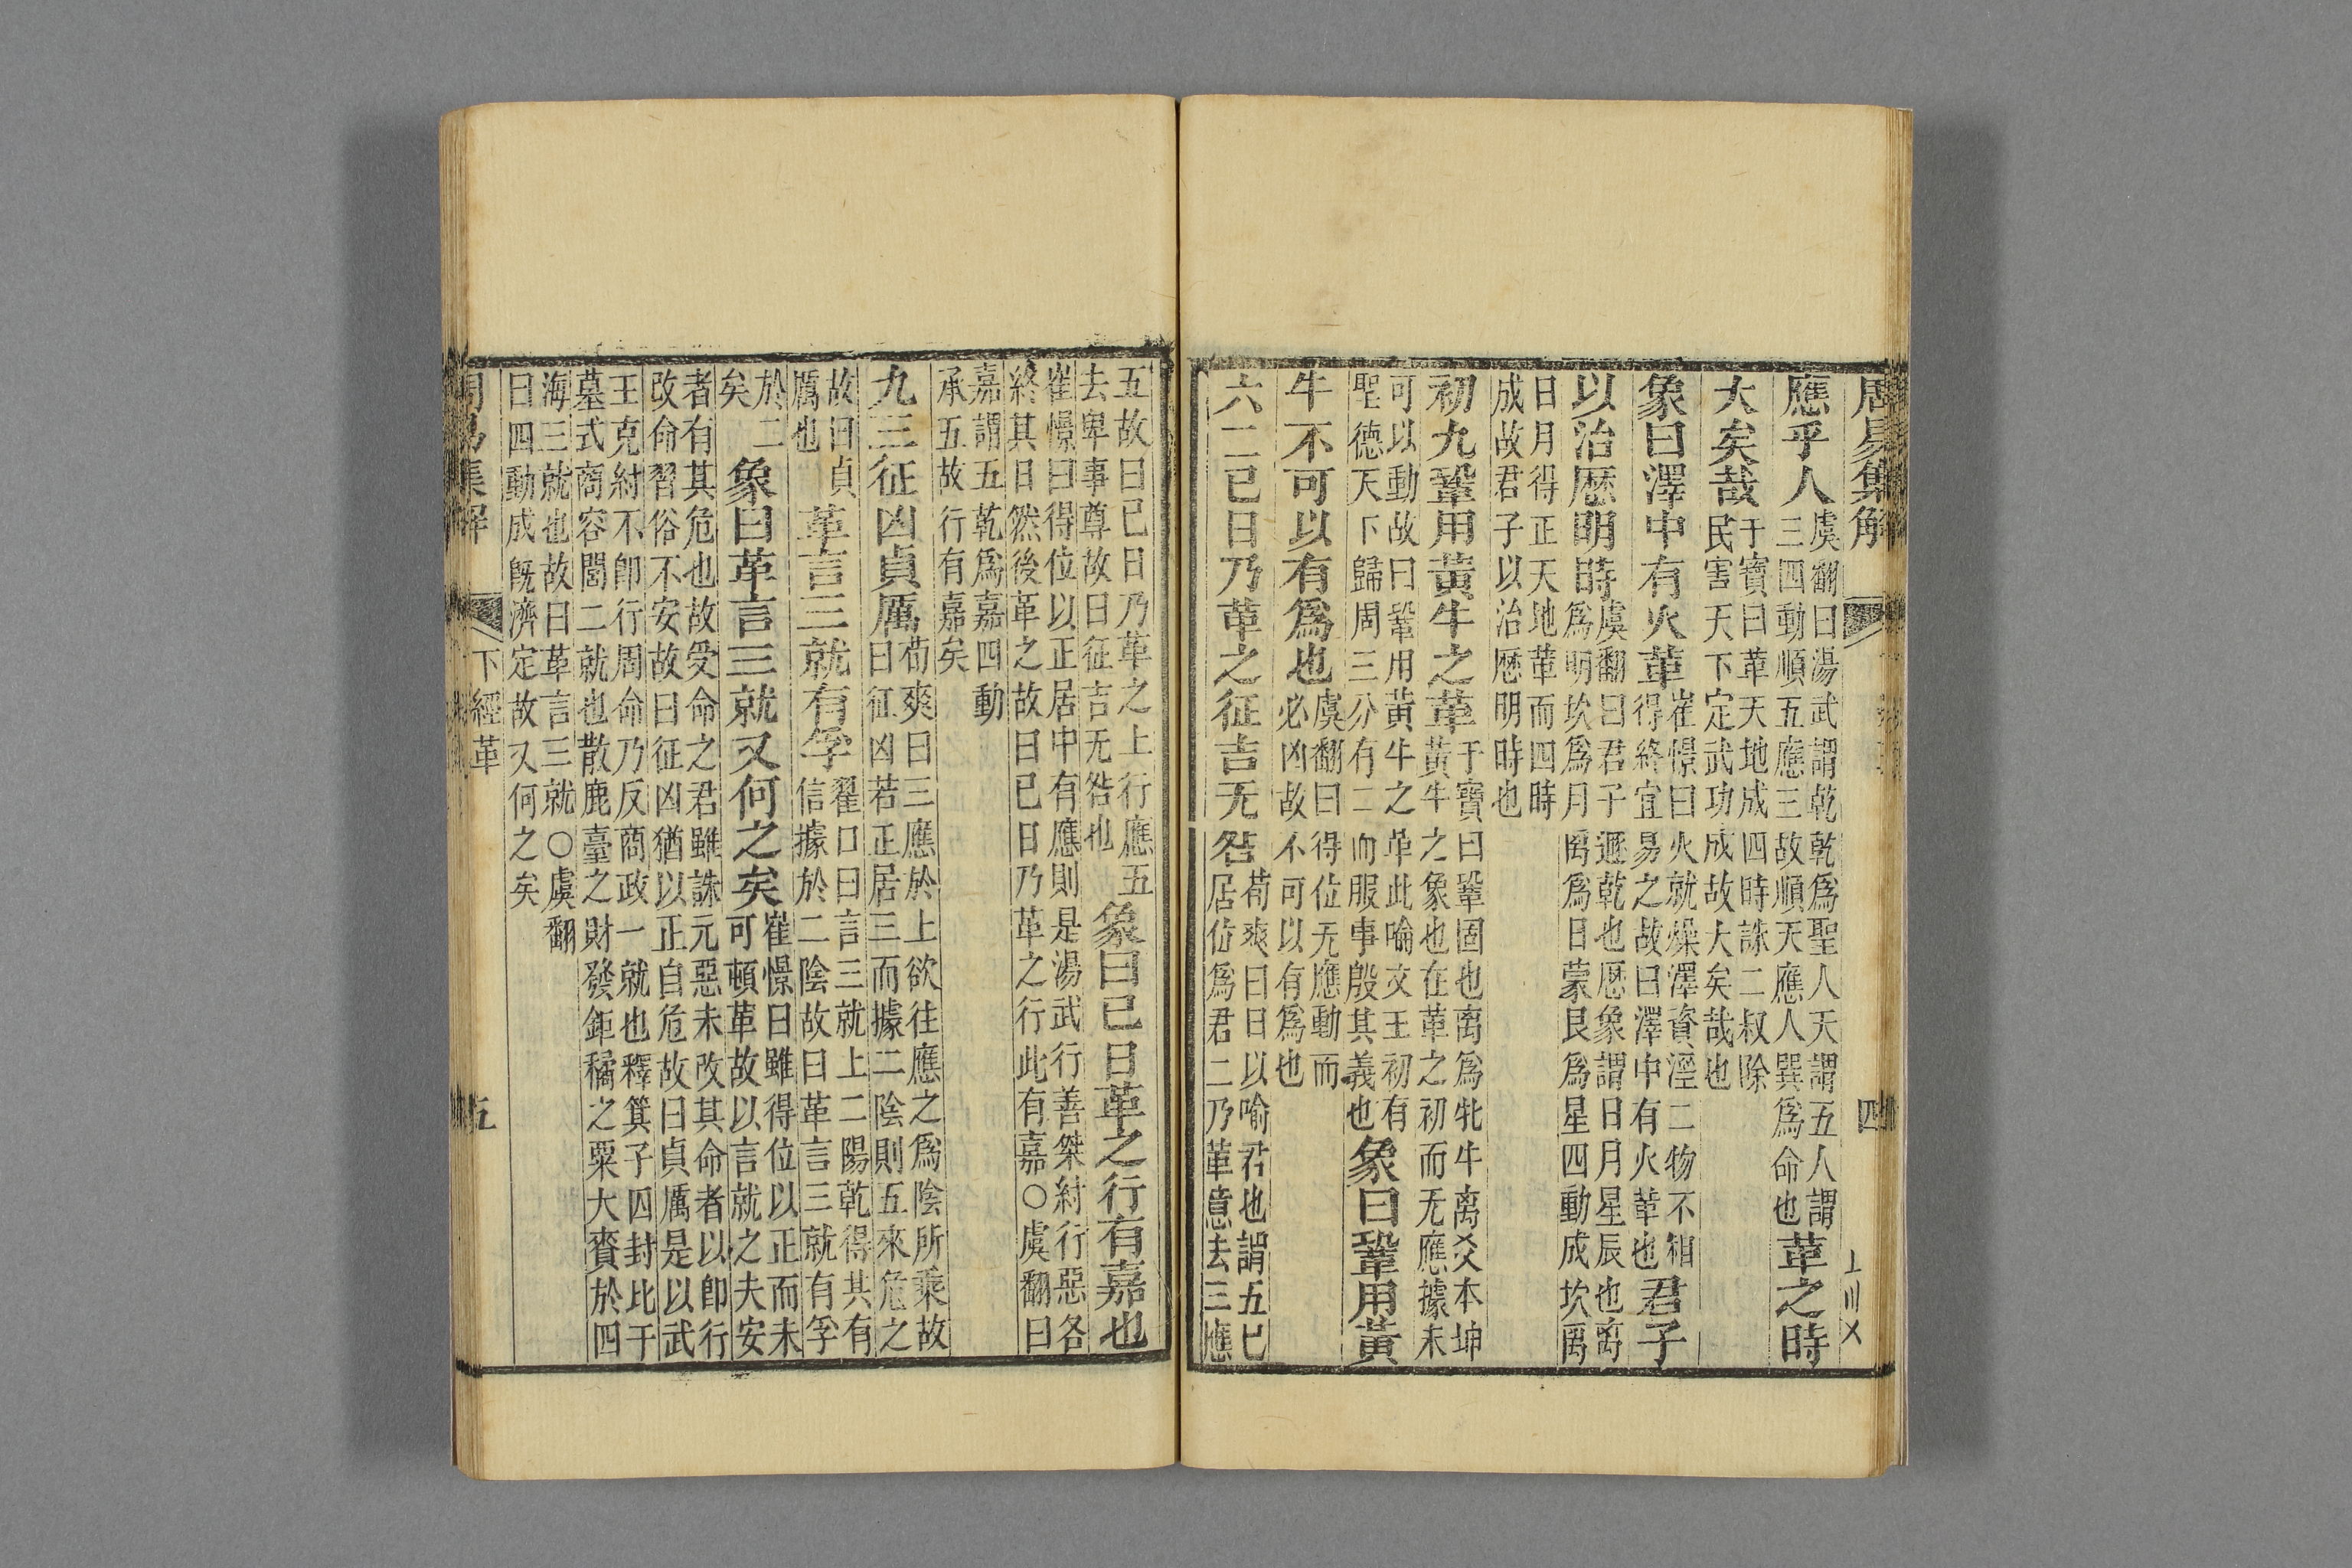 周易集解
四
應乎人虞翻曰湯武謂乾乾爲聖人天謂五人謂三四動順五應三故順天應人巽爲命也革之時
大矣哉干寶曰革天地成四時誅二叔除民害天下定武功成故大矣哉也
象曰澤中有火革崔憬曰火就燥澤資溼二物不相得終宜易之故曰澤中有火革也君子
以治歷明時虞翻曰君子遯乾也歷象謂日月星辰也离爲明坎爲月离爲日蒙艮爲星四動成坎离
日月得正天地革而四時成故君子以治歷明時也
初九鞏用黃牛之革干寶曰鞏固也离爲牝牛离爻本坤黃牛之象也在革之初而无應據未
可以動故曰鞏用黃牛之革此喻文王初有聖德天下歸周三分有二而服事殷其義也象曰鞏用黃
牛不可以有爲也虞翻曰得位无應動而必凶故不可以有爲也
六二已日乃革之征吉无咎荀爽曰日以喻君也謂五已居位爲君二乃革意去三應
五故曰已日乃革之上行應五去卑事尊故曰征吉无咎也象曰已日革之行有嘉也
崔憬曰得位以正居中有應則是湯武行善桀紂行惡各終其日然後革之故曰已日乃革之行此有嘉○虞翻曰
嘉謂五乾爲嘉四動承五故行有嘉矣
九三征凶貞厲荀爽曰三應於上欲往應之爲陰所乘故曰征凶若正居三而據二陰則五來危之
故曰貞厲也革言三就有孚翟口曰言三就上二陽乾得其有信據於二陰故曰革言三就有孚
於二矣象曰革言三就又何之矣崔憬曰雖得位以正而未可頓革故以言就之夫安
者有其危也故受命之君雖誅元惡未改其命者以卽行改命習俗不安故曰征凶猶以正自危故曰貞厲是以武
王克紂不卽行周命乃反商政一就也釋箕子囚封比干墓式商容閭二就也散鹿臺之財發鉅橋之粟大賚於四
海三就也故曰革言三就○虞翻曰四動成旣濟定故又何之矣
周易集解
下經革
五